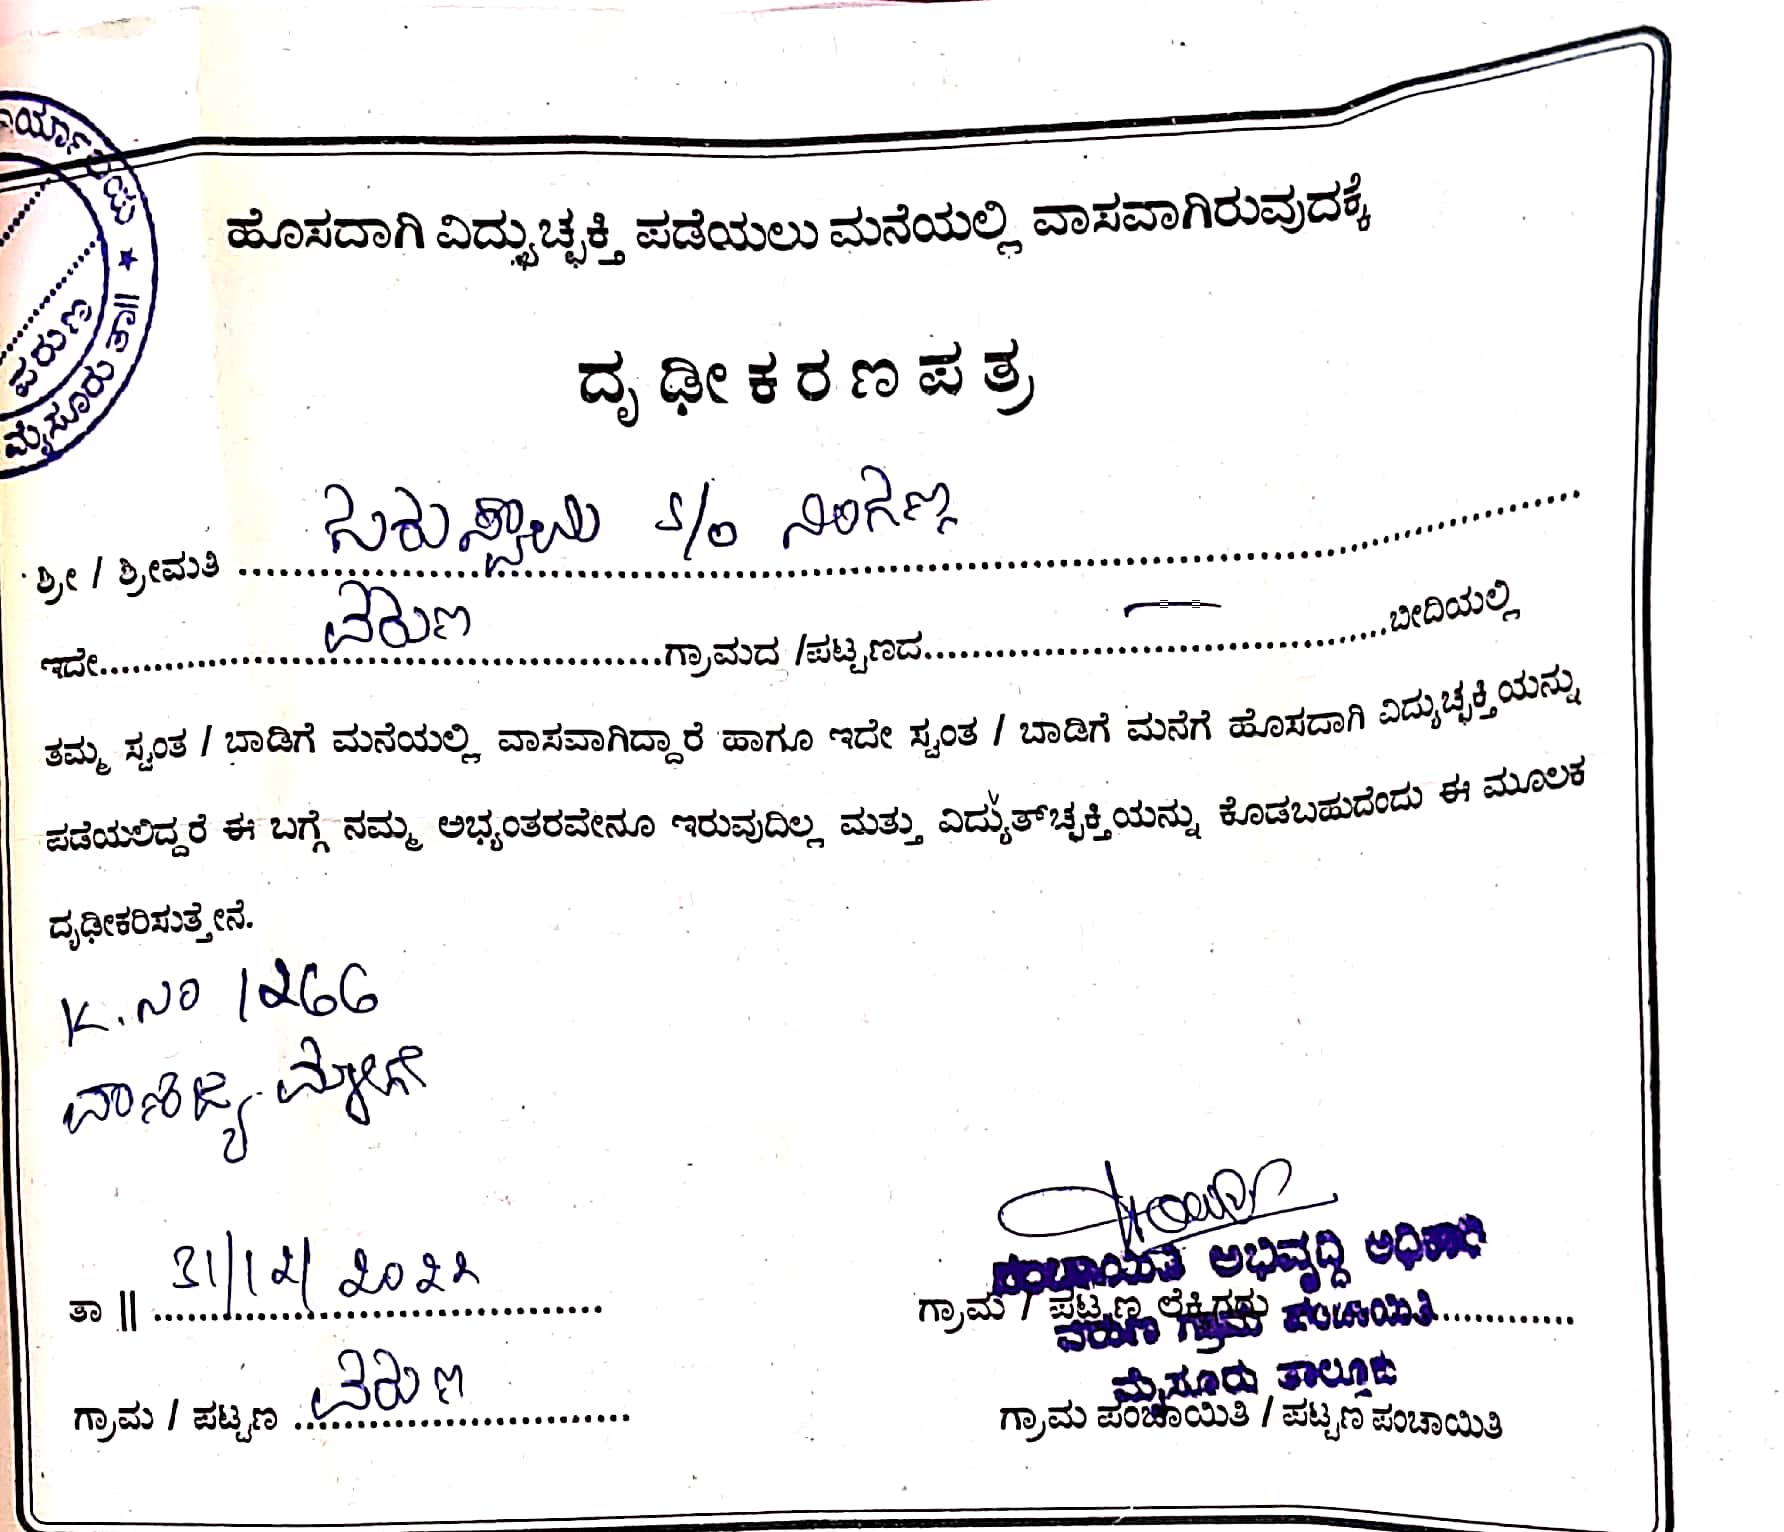 ಹೊಸದಾಗಿ ವಿದ್ಯುಚ್ಛಕ್ತಿ ಪಡೆಯಲು ಮನೆಯಲ್ಲಿ ವಾಸವಾಗಿರುವುದಕ್ಕೆ
ವರುಣ
ಮೈಸೂರು ತಾ||
ದೃಢೀಕರಣಪತ್ರ
ಶ್ರೀ / ಶ್ರೀಮತಿ ಗುರುಸ್ವಾಮಿ S/o ನಿಂಗಣ್ಣ
ಇದೇ ವರುಣ ಗ್ರಾಮದ /ಪಟ್ಟಣದ — ಬೀದಿಯಲ್ಲಿ
ತಮ್ಮ ಸ್ವಂತ / ಬಾಡಿಗೆ ಮನೆಯಲ್ಲಿ ವಾಸವಾಗಿದ್ದಾರೆ ಹಾಗೂ ಇದೇ ಸ್ವಂತ / ಬಾಡಿಗೆ ಮನೆಗೆ ಹೊಸದಾಗಿ ವಿದ್ಯುಚ್ಛಕ್ತಿಯನ್ನು
ಪಡೆಯಲಿದ್ದರೆ ಈ ಬಗ್ಗೆ ನಮ್ಮ ಅಭ್ಯಂತರವೇನೂ ಇರುವುದಿಲ್ಲ ಮತ್ತು ವಿದ್ಯುತ್‌ಚ್ಛಕ್ತಿಯನ್ನು ಕೊಡಬಹುದೆಂದು ಈ ಮೂಲಕ
ದೃಢೀಕರಿಸುತ್ತೇನೆ.
K.ನಂ 1266
ವಾಣಿಜ್ಯ ಮಳಿಗೆ
ಪಂಚಾಯಿತಿ ಅಭಿವೃದ್ಧಿ ಅಧಿಕಾರಿ
ತಾ || 31/12/2022
ಗ್ರಾಮ / ಪಟ್ಟಣ ಲೆಕ್ಕಿಗರು
ವರುಣ ಗ್ರಾಮ ಪಂಚಾಯಿತಿ
ಮೈಸೂರು ತಾಲ್ಲೂಕು
ಗ್ರಾಮ / ಪಟ್ಟಣ ವರುಣ
ಗ್ರಾಮ ಪಂಚಾಯಿತಿ / ಪಟ್ಟಣ ಪಂಚಾಯಿತಿ